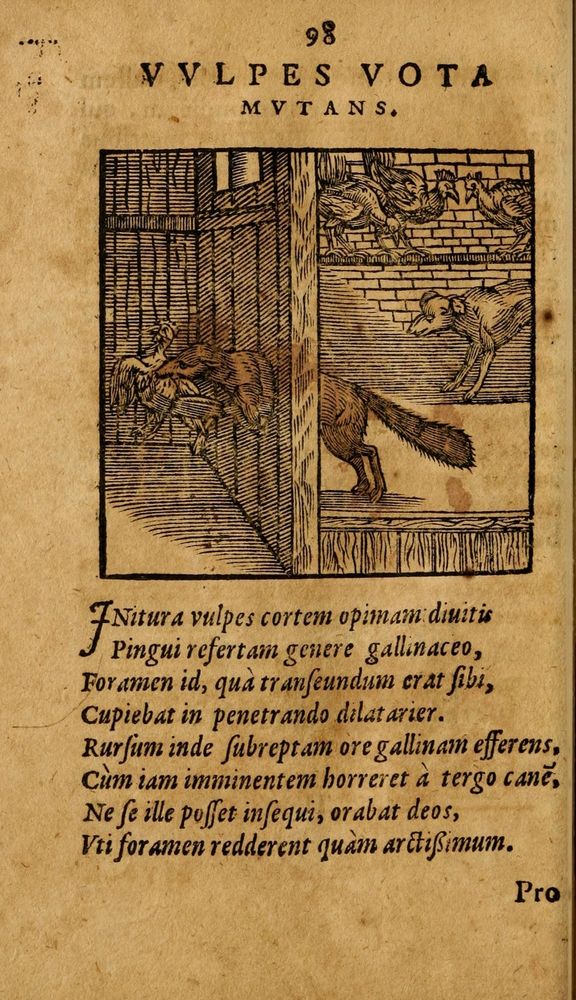 98
VVLPES VOTA
MVTANS.
INitura vulpes cortem opimam diuitis
Pingui refertam genere gallinaceo,
Foramen id, quà tranſeundum erat ſibi,
Cupiebat in penetrando dilatarier.
Rurſum inde ſubreptam ore gallinam efferens,
Cùm iam imminentem horreret à tergo canē,
Ne ſe ille poſſet inſequi, orabat deos,
Vti foramen redderent quàm arctißimum.
Pro